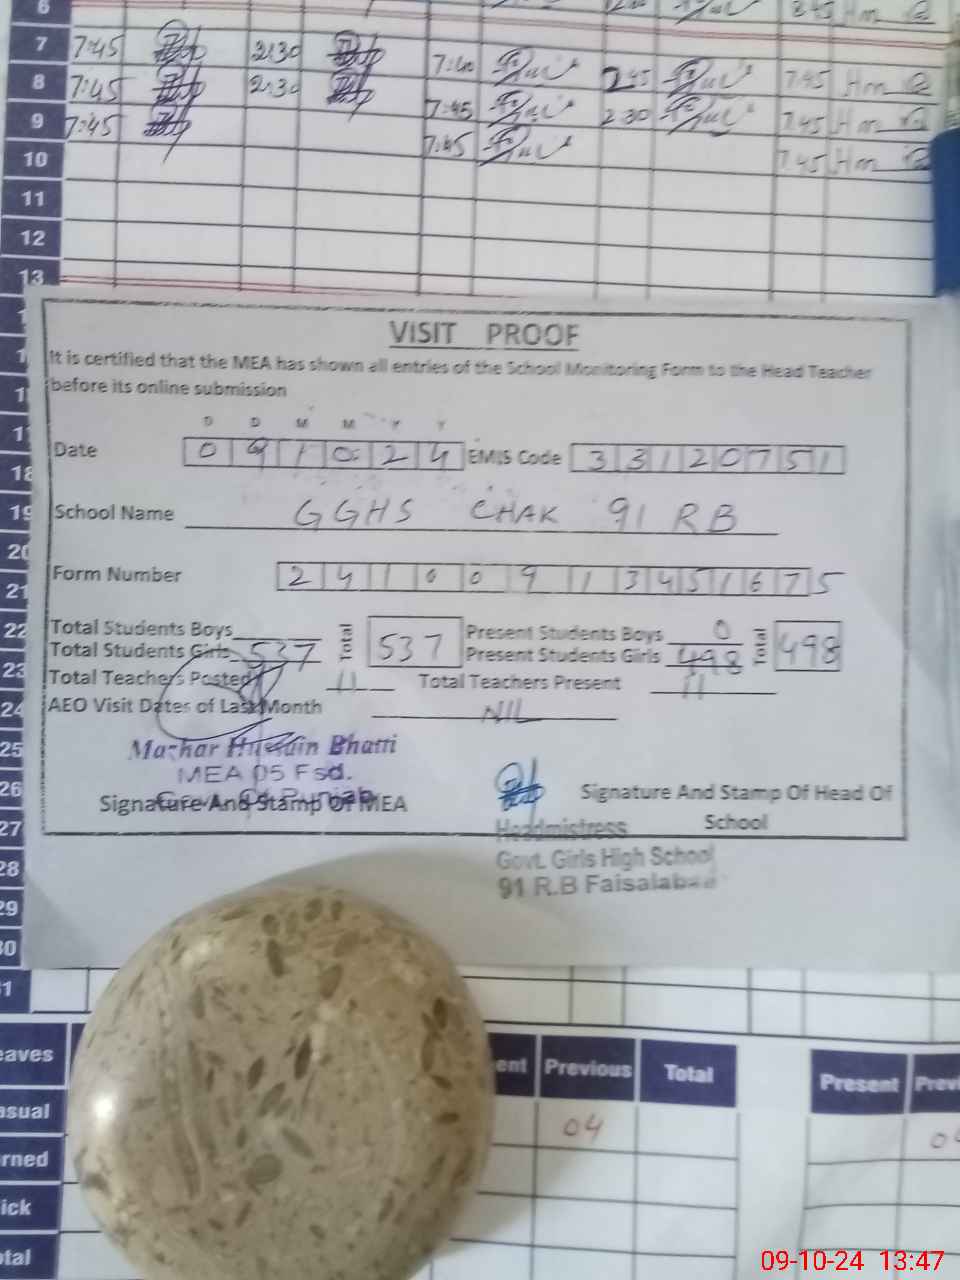 6
2:45 Hm
7 7:45 2:30 7:40 2:45 7:45 Hm
8 7:45 2:30 7:45 2:30 7:45 Hm
9 7:45 7:45 7:45 Hm
10
11
12
13
VISIT PROOF
It is certified that the MEA has shown all entries of the School Monitoring Form to the Head Teacher
before its online submission
D D M M Y Y
Date 0 9 1 0 2 4 EMIS Code 3 3 1 2 0 7 5 1
18
School Name GGHS CHAK 91 RB
19
20
Form Number 2 4 1 0 0 9 1 3 4 5 1 6 7 5
21
22 Total Students Boys Total 537 Present Students Boys 0 Total 498
Total Students Girls 537 Present Students Girls 498
23 Total Teachers Posted 11 Total Teachers Present 11
24 AEO Visit Dates of Last Month NIL
25 Mazhar Hussain Bhatti
MEA 05 Fsd.
26 Govt. Of Punjab
Signature And Stamp Of MEA Signature And Stamp Of Head Of
27 School
Headmistress
28 Govt. Girls High School
91 R.B Faisalabad
29
30
31
eaves ent Previous Total Present Previ
asual 04 0
rned
ick
otal
09-10-24 13:47